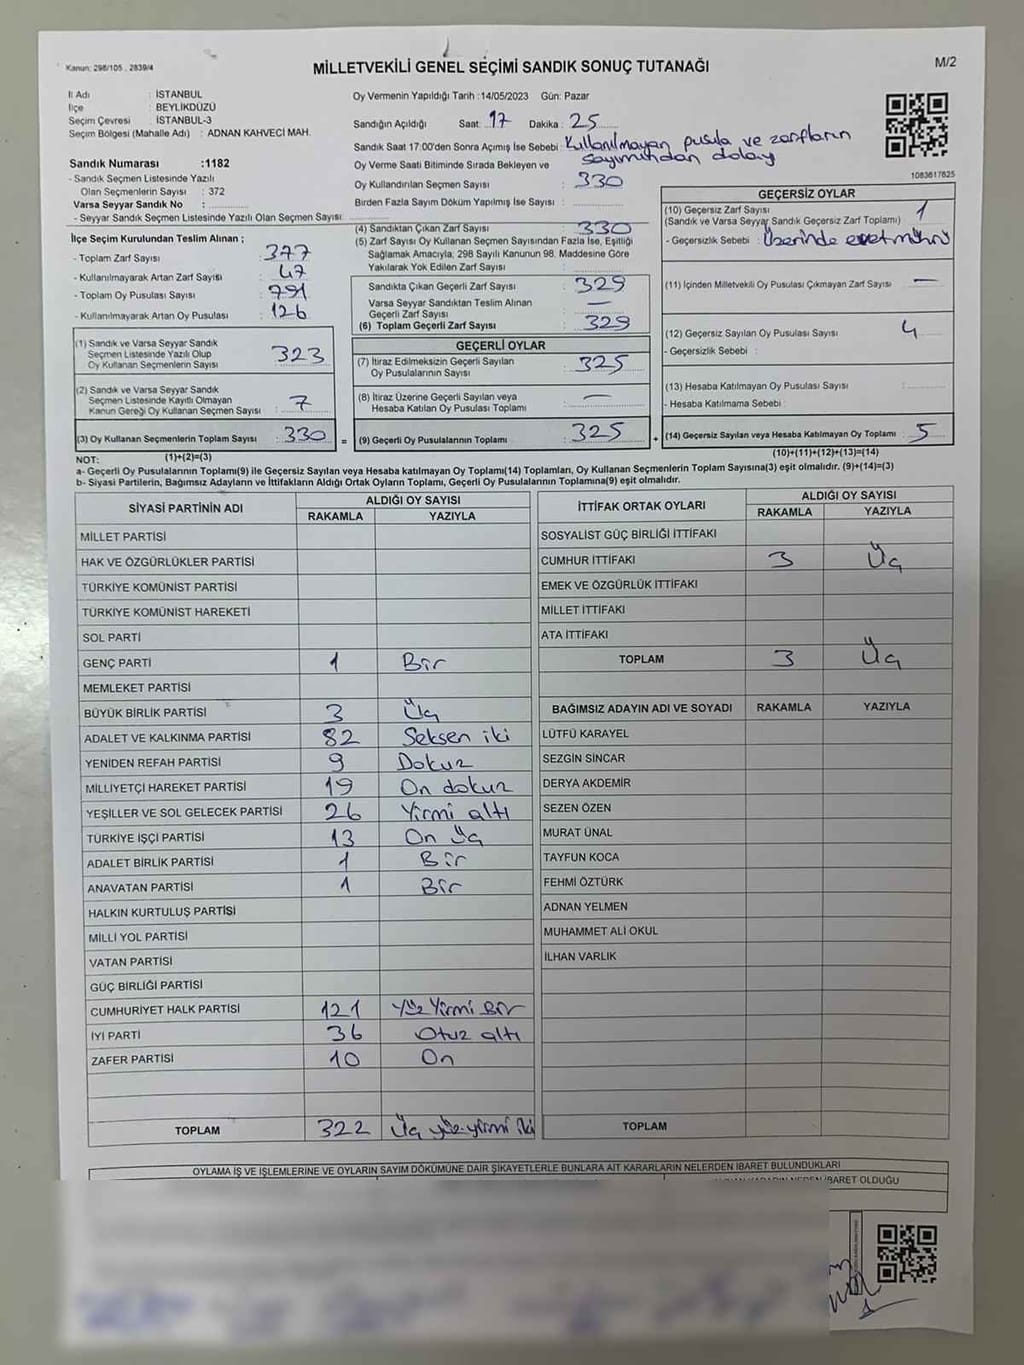 Kanun: 298/105 , 2839/4
MİLLETVEKİLİ GENEL SEÇİMİ SANDIK SONUÇ TUTANAĞI
M/2
İl Adı : İSTANBUL
İlçe : BEYLİKDÜZÜ
Seçim Çevresi : İSTANBUL-3
Seçim Bölgesi (Mahalle Adı) : ADNAN KAHVECİ MAH.
Sandık Numarası :1182
- Sandık Seçmen Listesinde Yazılı
Olan Seçmenlerin Sayısı : 372
Varsa Seyyar Sandık No :
- Seyyar Sandık Seçmen Listesinde Yazılı Olan Seçmen Sayısı:
Oy Vermenin Yapıldığı Tarih :14/05/2023 Gün: Pazar
Sandığın Açıldığı Saat: 17 Dakika : 25
Sandık Saat 17:00'den Sonra Açımış İse Sebebi : Kullanılmayan pusula ve zarfların
sayımından dolay
Oy Verme Saati Bitiminde Sırada Bekleyen ve
Oy Kullandırılan Seçmen Sayısı : 330
Birden Fazla Sayım Döküm Yapılmış İse Sayısı :
1083617825
İlçe Seçim Kurulundan Teslim Alınan ;
- Toplam Zarf Sayısı : 377
- Kullanılmayarak Artan Zarf Sayısı : 47
- Toplam Oy Pusulası Sayısı : 791
- Kullanılmayarak Artan Oy Pusulası : 126
(1) Sandık ve Varsa Seyyar Sandık
Seçmen Listesinde Yazılı Olup
Oy Kullanan Seçmenlerin Sayısı : 323
(2) Sandık ve Varsa Seyyar Sandık
Seçmen Listesinde Kayıtlı Olmayan
Kanun Gereği Oy Kullanan Seçmen Sayısı : 7
(3) Oy Kullanan Seçmenlerin Toplam Sayısı : 330 =
(4) Sandıktan Çıkan Zarf Sayısı : 330
(5) Zarf Sayısı Oy Kullanan Seçmen Sayısından Fazla İse, Eşitliği
Sağlamak Amacıyla, 298 Sayılı Kanunun 98. Maddesine Göre
Yakılarak Yok Edilen Zarf Sayısı :
Sandıkta Çıkan Geçerli Zarf Sayısı : 329
Varsa Seyyar Sandıktan Teslim Alınan
Geçerli Zarf Sayısı : —
(6) Toplam Geçerli Zarf Sayısı : 329
GEÇERLİ OYLAR
(7) İtiraz Edilmeksizin Geçerli Sayılan
Oy Pusulalarının Sayısı : 325
(8) İtiraz Üzerine Geçerli Sayılan veya
Hesaba Katılan Oy Pusulası Toplamı : —
(9) Geçerli Oy Pusulalarının Toplamı : 325 +
GEÇERSİZ OYLAR
(10) Geçersiz Zarf Sayısı : 1
(Sandık ve Varsa Seyyar Sandık Geçersiz Zarf Toplamı)
- Geçersizlik Sebebi : Üzerinde evet mührü
(11) İçinden Milletvekili Oy Pusulası Çıkmayan Zarf Sayısı : —
(12) Geçersiz Sayılan Oy Pusulası Sayısı : 4
- Geçersizlik Sebebi :
(13) Hesaba Katılmayan Oy Pusulası Sayısı :
- Hesaba Katılmama Sebebi :
(14) Geçersiz Sayılan veya Hesaba Katılmayan Oy Toplamı : 5
NOT: (1)+(2)=(3) (10)+(11)+(12)+(13)=(14)
a- Geçerli Oy Pusulalarının Toplamı(9) ile Geçersiz Sayılan veya Hesaba katılmayan Oy Toplamı(14) Toplamları, Oy Kullanan Seçmenlerin Toplam Sayısına(3) eşit olmalıdır. (9)+(14)=(3)
b- Siyasi Partilerin, Bağımsız Adayların ve İttifakların Aldığı Ortak Oyların Toplamı, Geçerli Oy Pusulalarının Toplamına(9) eşit olmalıdır.
SİYASİ PARTİNİN ADI ALDIĞI OY SAYISI
RAKAMLA YAZIYLA
MİLLET PARTİSİ
HAK VE ÖZGÜRLÜKLER PARTİSİ
TÜRKİYE KOMÜNİST PARTİSİ
TÜRKİYE KOMÜNİST HAREKETİ
SOL PARTİ
GENÇ PARTİ 1 Bir
MEMLEKET PARTİSİ
BÜYÜK BİRLİK PARTİSİ 3 Üç
ADALET VE KALKINMA PARTİSİ 82 Seksen iki
YENİDEN REFAH PARTİSİ 9 Dokuz
MİLLİYETÇİ HAREKET PARTİSİ 19 On dokuz
YEŞİLLER VE SOL GELECEK PARTİSİ 26 Yirmi altı
TÜRKİYE İŞÇİ PARTİSİ 13 On Üç
ADALET BİRLİK PARTİSİ 1 Bir
ANAVATAN PARTİSİ 1 Bir
HALKIN KURTULUŞ PARTİSİ
MİLLİ YOL PARTİSİ
VATAN PARTİSİ
GÜÇ BİRLİĞİ PARTİSİ
CUMHURİYET HALK PARTİSİ 121 Yüz Yirmi Bir
İYİ PARTİ 36 Otuz altı
ZAFER PARTİSİ 10 On
TOPLAM 322 Üç yüz yirmi iki
İTTİFAK ORTAK OYLARI ALDIĞI OY SAYISI
RAKAMLA YAZIYLA
SOSYALİST GÜÇ BİRLİĞİ İTTİFAKI
CUMHUR İTTİFAKI 3 Üç
EMEK VE ÖZGÜRLÜK İTTİFAKI
MİLLET İTTİFAKI
ATA İTTİFAKI
TOPLAM 3 Üç
BAĞIMSIZ ADAYIN ADI VE SOYADI RAKAMLA YAZIYLA
LÜTFÜ KARAYEL
SEZGİN SİNCAR
DERYA AKDEMİR
SEZEN ÖZEN
MURAT ÜNAL
TAYFUN KOCA
FEHMİ ÖZTÜRK
ADNAN YELMEN
MUHAMMET ALİ OKUL
İLHAN VARLIK
TOPLAM
OYLAMA İŞ VE İŞLEMLERİNE VE OYLARIN SAYIM DÖKÜMÜNE DAİR ŞİKAYETLERLE BUNLARA AİT KARARLARIN NELERDEN İBARET BULUNDUKLARI
İBARET OLDUĞU